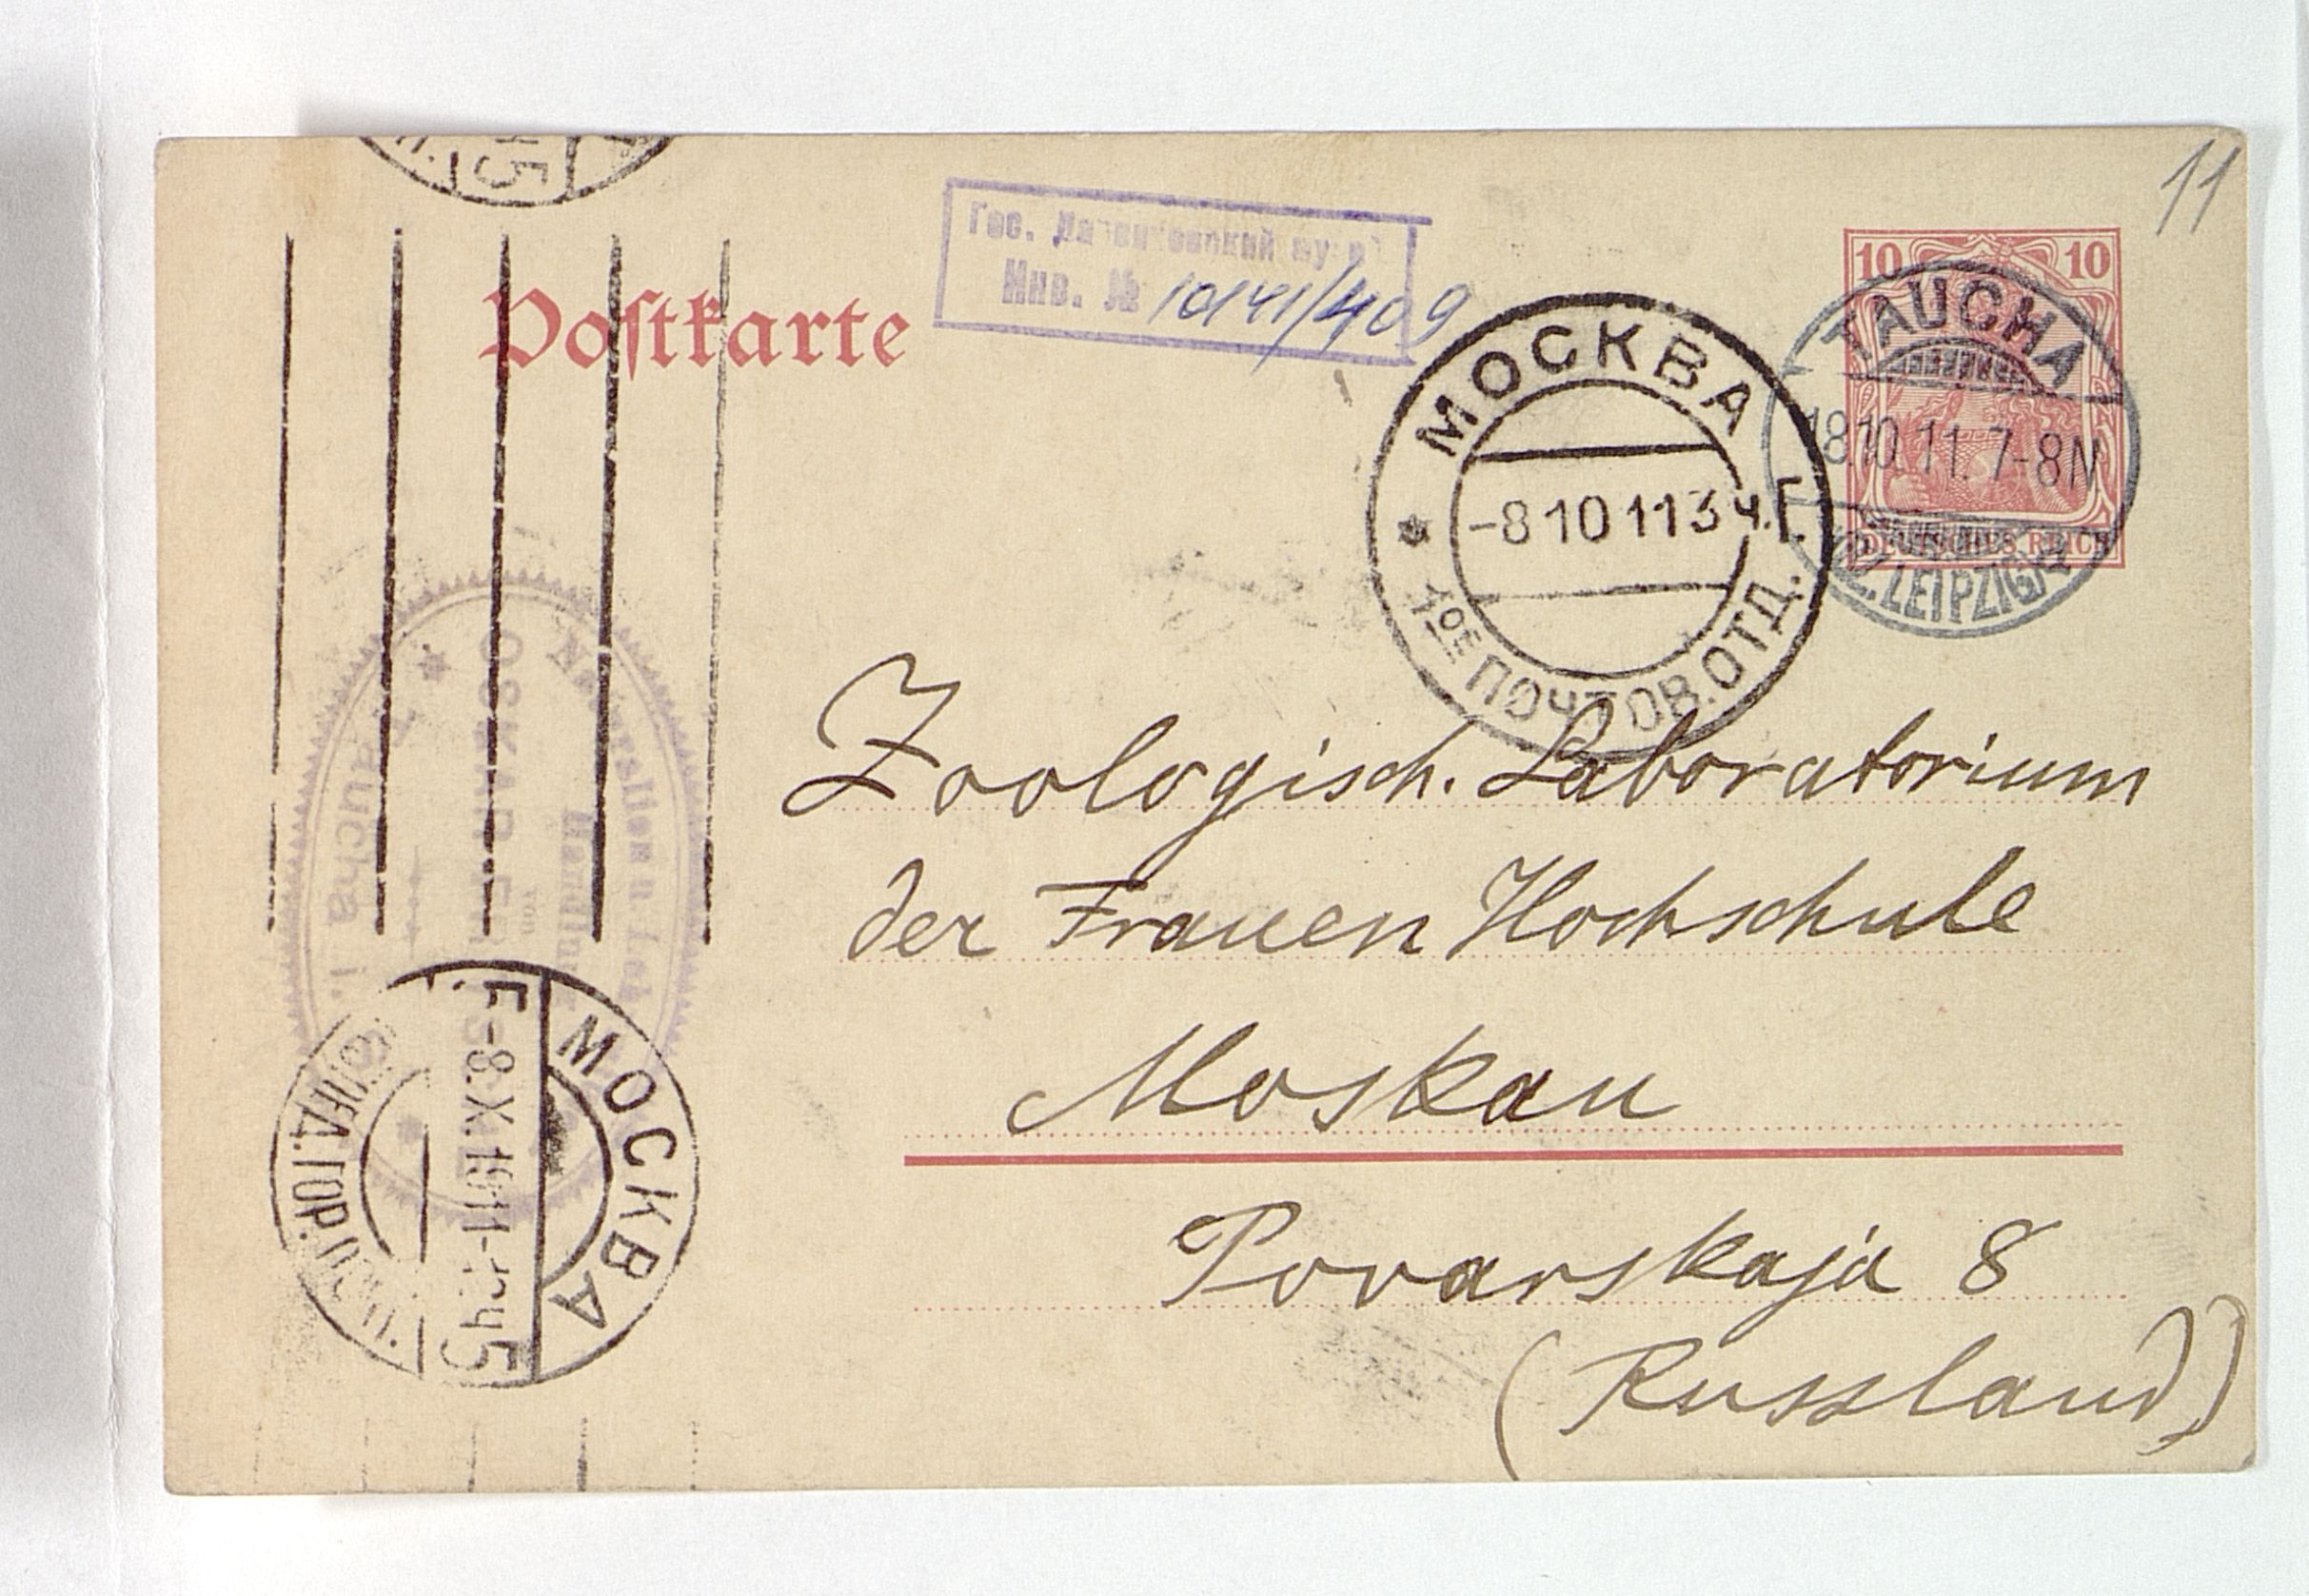 11
Гос. музей
Инв. № 10141/409
Postkarte
10 10
DEUTSCHES REICH
TAUCHA
18.10.11.7-8N
LEIPZIG
МОСКВА
-8 10 11 3 ч. Г.
1ОЕ ПОЧТОВ. ОТД.
Zoologisch. Laboratorium
der Frauen Hochschule
Moskau
Povarskaja 8
(Russland)
Naturalien
Handlung
von
OSKAR
Taucha
МОСКВА
-8.X.1911